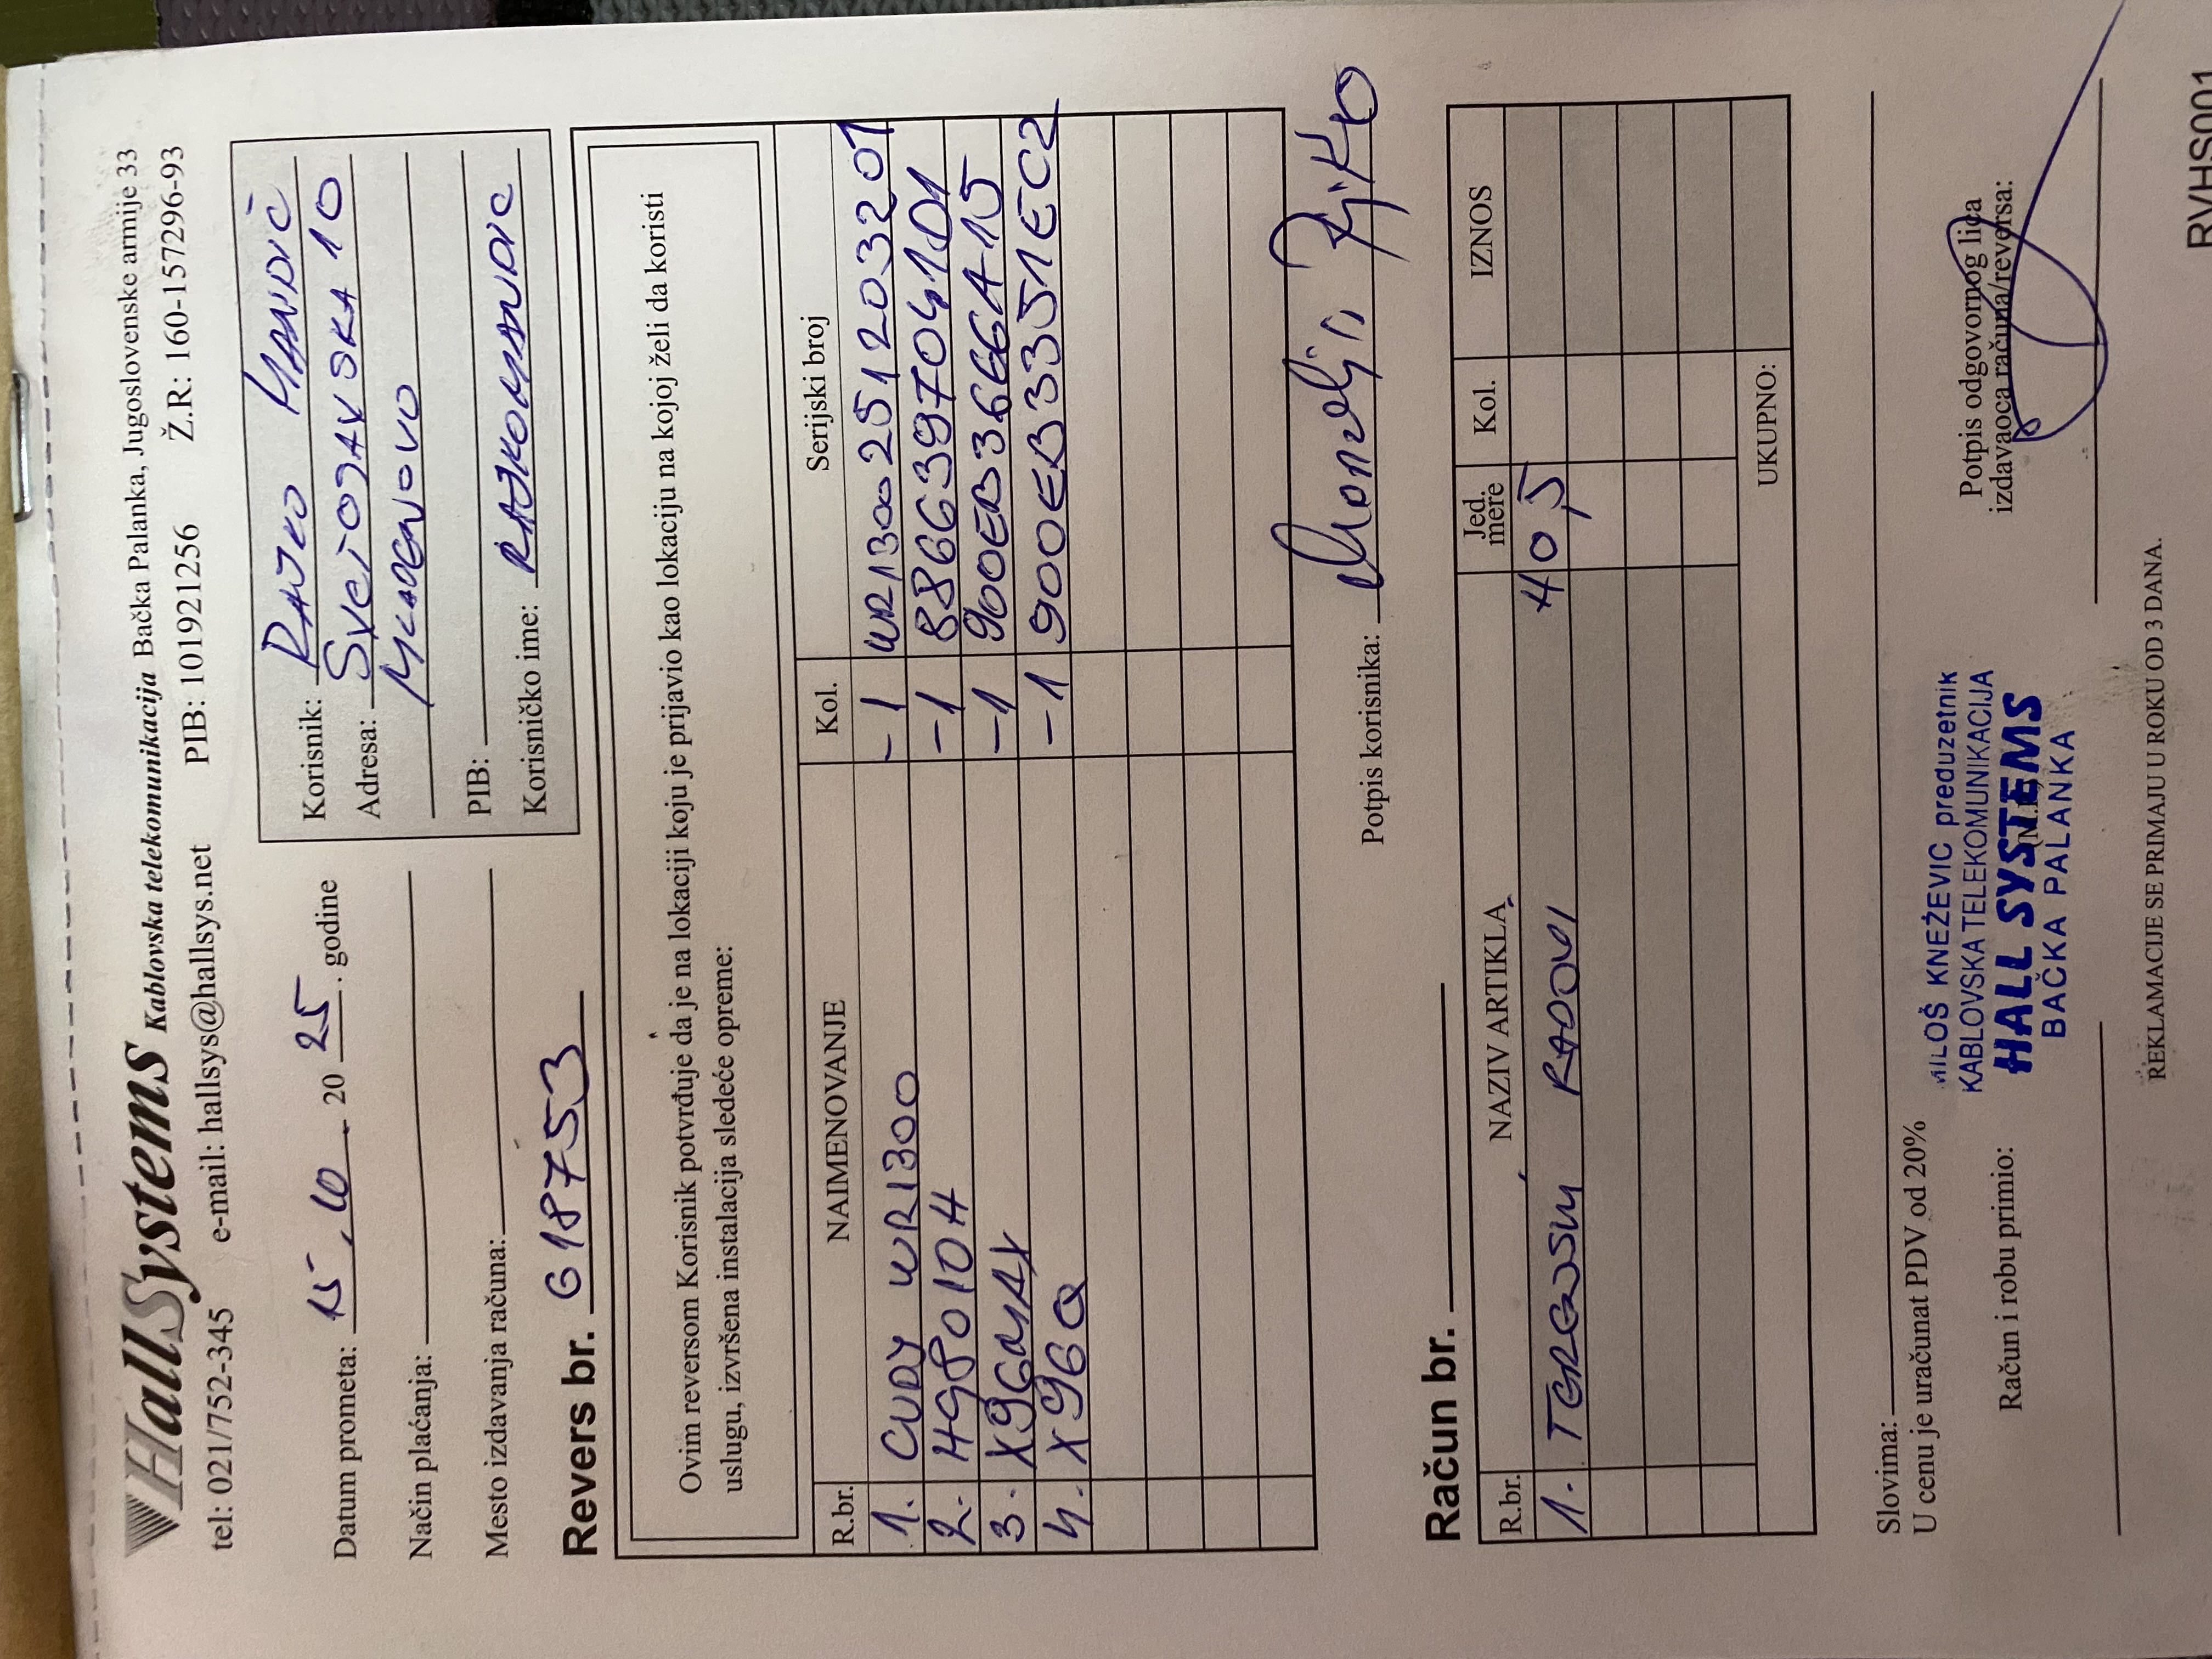 HallSystems Kablovska telekomunikacija Bačka Palanka, Jugoslovenske armije 33
tel: 021/752-345 e-mail: hallsys@hallsys.net PIB: 101921256 Ž.R: 160-157296-93
Datum prometa: 15.10. 2025. godine
Način plaćanja:
Mesto izdavanja računa:
Korisnik: RAJKO MANDIĆ
Adresa: SVETOJAVSKA 10
MLADENOVO
PIB:
Korisničko ime: RAJKOMANDIC
Revers br. 618753
Ovim reversom Korisnik potvrđuje da je na lokaciji koju je prijavio kao lokaciju na kojoj želi da koristi
uslugu, izvršena instalacija sledeće opreme:
R.br. NAIMENOVANJE Kol. Serijski broj
1. CUDY WR1300 -1 WR1300251203201
2. HG8010H -1 886639704101
3. X96MAX -1 900EB3666A15
4. X96Q -1 900EB3351EC2
Potpis korisnika:
Račun br.
R.br. NAZIV ARTIKLA Jed. mere Kol. IZNOS
1. TERENSKI RADOVI H 0,5
UKUPNO:
Slovima:
U cenu je uračunat PDV od 20%
Račun i robu primio:
MILOŠ KNEŽEVIĆ preduzetnik
KABLOVSKA TELEKOMUNIKACIJA
HALL SYSTEMS
BAČKA PALANKA
Potpis odgovornog lica
izdavaoca računa/reversa:
REKLAMACIJE SE PRIMAJU U ROKU OD 3 DANA.
RVHS001